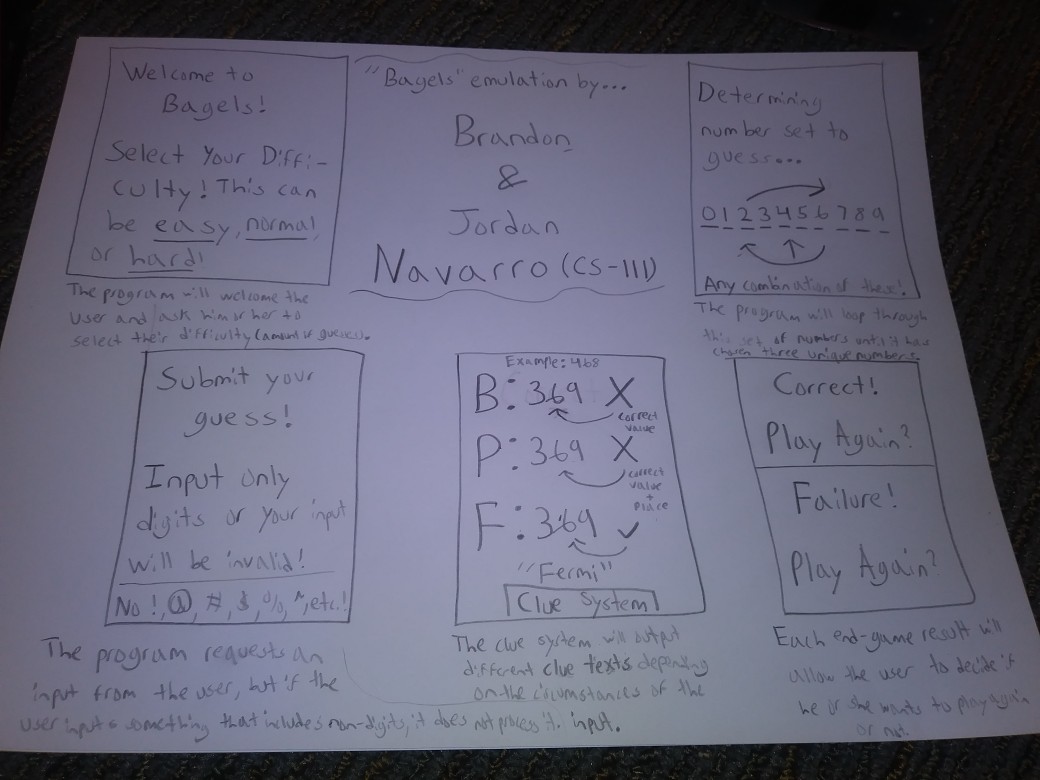 Welcome to
Bagels!
Select Your Diffi-
culty! This can
be easy, normal,
or hard!
The program will welcome the
user and ask him or her to
select their difficulty (amount of guesses).
"Bagels" emulation by...
Brandon
&
Jordan
Navarro (CS-111)
Determining
number set to
guess...
0 1 2 3 4 5 6 7 8 9
Any combination of these!
The program will loop through
this set of numbers until it has
chosen three unique numbers.
Submit your
guess!
Input only
digits or your input
will be invalid!
No !, @, #, $, %, ^, etc.!
The program requests an
input from the user, but if the
user inputs something that includes non-digits, it does not process it.
Example: 468
B: 369 X
correct
value
P: 369 X
correct
value
+
place
F: 369 ✓
"Fermi"
Clue System
The clue system will output
different clue texts depending
on the circumstances of the
input.
Correct!
Play Again?
Failure!
Play Again?
Each end-game result will
allow the user to decide if
he or she wants to play again
or not.